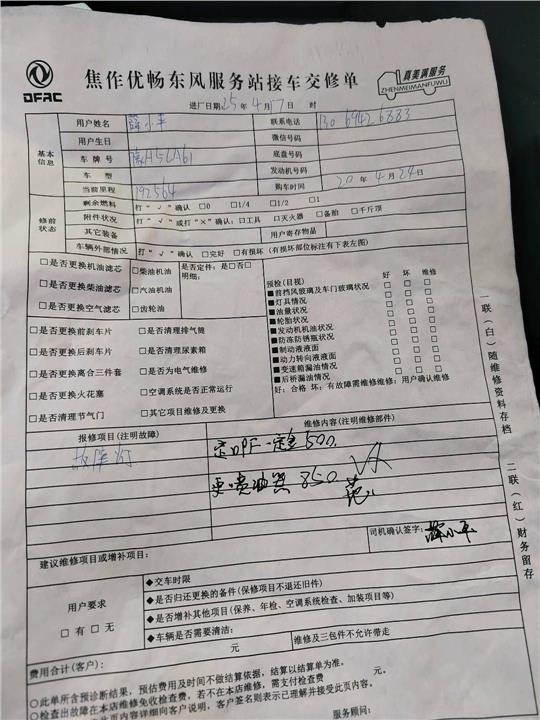 DFAC
焦作优畅东风服务站接车交修单
真美满服务
ZHENMEIMANFUWU
进厂日期:25 年 4 月 17 日 时
基本信息
用户姓名 薛小平 联系电话 130 6942 6333
用户生日 微信号码
车牌号 底盘号码
车型 发动机号码
当前里程 192564 购车时间 20 年 4 月 24 日
修前状态
剩余燃料 打“√”确认 □0 □1/4 □1/2 □1
附件状况 打“√”或打“×”确认:□工具 □灭火器 □备胎 □千斤顶
其它装备 用户寄存物品
车辆外部情况 打“√”确认 □完好 □有损坏(有损坏部位标注有下表左图)
□是否更换机油滤芯 □柴油机油 是否定件:是□否□
明细:
□是否更换柴油滤芯 □汽油机油
□是否更换空气滤芯 □齿轮油
□是否更换前刹车片 □是否清理排气筒
□是否更换后刹车片 □是否清理尿素箱
□是否更换离合三件套 □是否为电气维修
□是否更换火花塞 □空调系统是否正常运行
□是否清理节气门 □其它项目维修及更换
预检(目视) 好 坏 维修
■前挡风玻璃及车门玻璃状况 □ □ □
■灯具情况 □ □ □
■油量状况 □ □ □
■轮胎状况 □ □ □
■发动机机油状况 □ □ □
■防冻防锈瓶状况 □ □ □
■制动液液面 □ □ □
■动力转向液液面 □ □ □
■变速箱漏油情况 □ □ □
■后桥漏油情况 □ □ □
好:合格 坏:有故障需维修维修:用户确认维修
报修项目(注明故障) 维修内容(注明维修部件)
故障灯
DPF 500
更喷油器 850
司机确认签字: 薛小平
建议维修项目或增补项目:
用户要求
□有 □无
◆交车时限
◆是否归还更换的备件(保修项目不退还旧件)
◆是否增补其他项目(保养、年检、空调系统检查、加装项目等)
◆车辆是否需要清洁:
元 维修及三包件不允许带走
费用合计(客户): 元。
○此单所含预诊断结果,预估费用及时间不做结算依据,结算以结算单为准。
○检查出故障在本店维修免收检查费,若不在本店维修,需支付检查费
此页内容详细向客户说明,客户签名则表示已理解并接受此页内容。
服务顾问:
一联(白)随维修资料存档
二联(红)财务留存